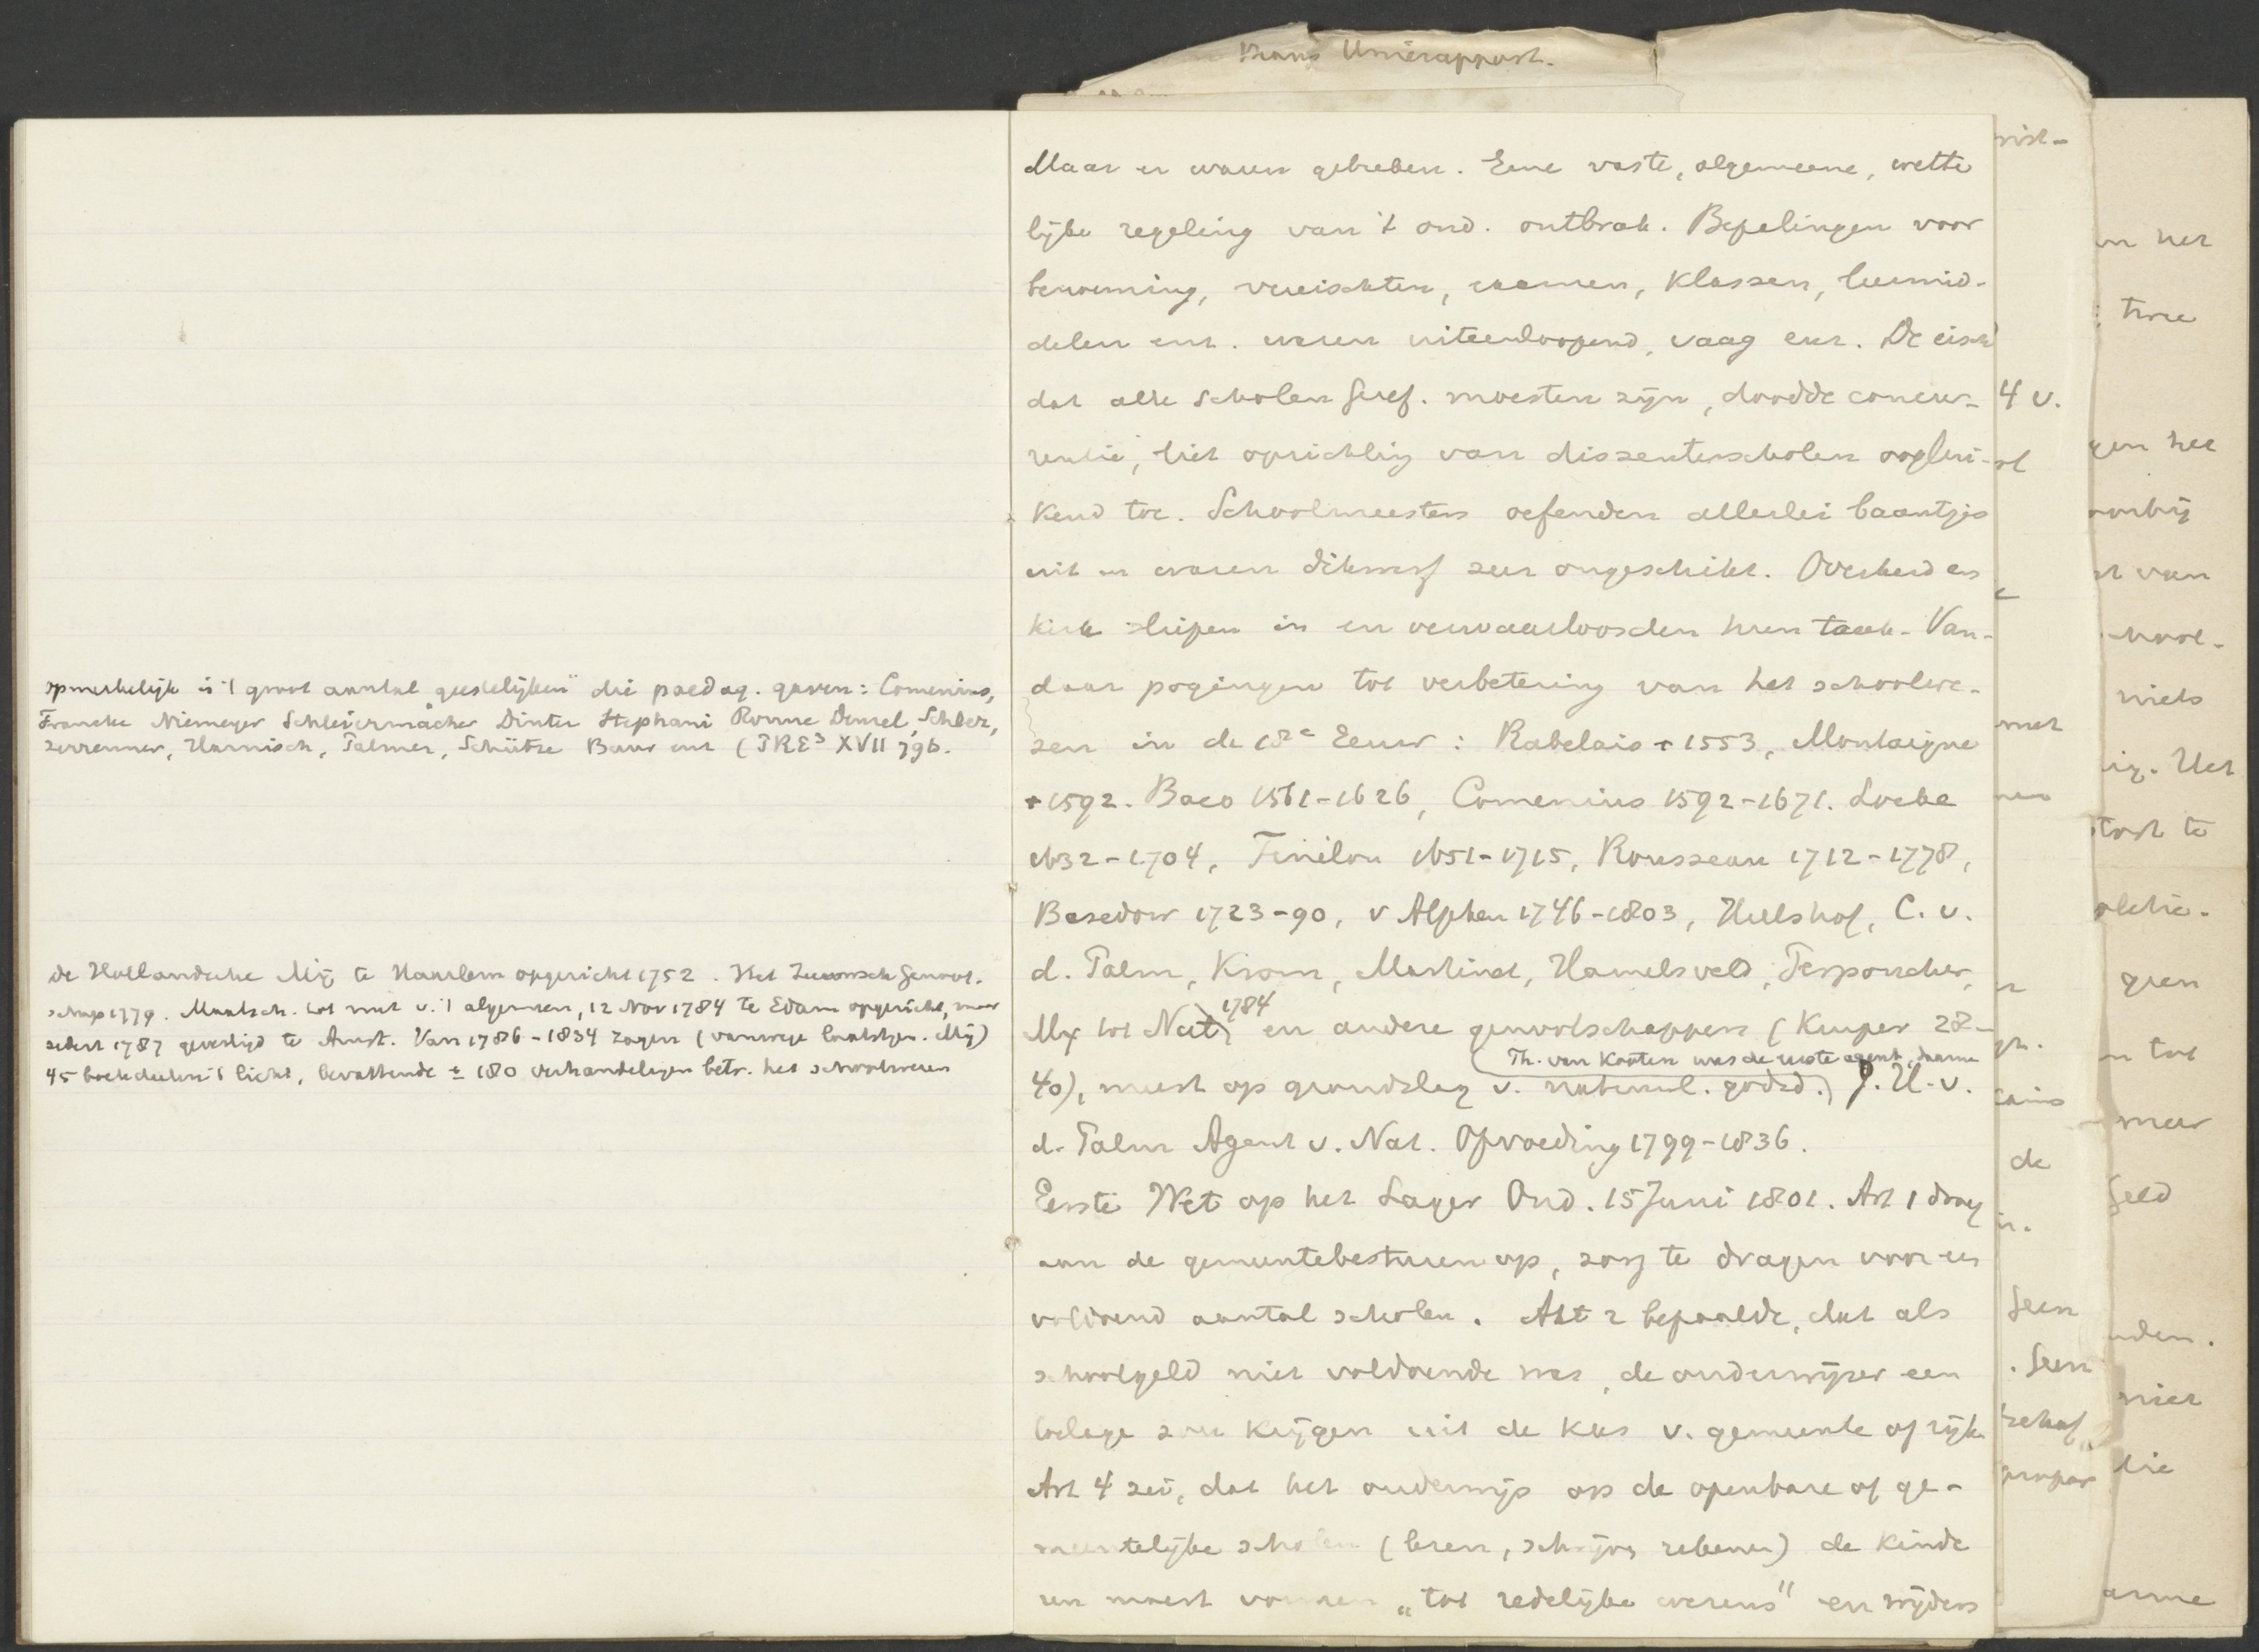 Unierapport.
opmerkelijk is 't groot aantal geestelijken die paedag. gaven: Comenius,
Francke Niemeyer Schleiermacher Dinter Stephani Denzel, Schlez,
Zerrenner, Harnisch, Palmer, Schütze Baur enz (PRE³ XVII 796.
de Hollandsche Mij te Haarlem opgericht 1752. Het Zeeuwsch Genoot-
schap 1779. Maatsch. tot nut v. 't algemeen, 12 Nov 1784 te Edam opgericht, maar
sedert 1787 gevestigd te Amst. Van 1786-1834 zagen (vanwege laatstgen. Mij)
45 boekdeelen 't licht, bevattende ± 180 verhandelingen betr. het schoolwezen
Maar er waren gebreken. Eene vaste, algemeene, wette
lijke regeling van 't ond. ontbrak. Bepalingen voor
benoeming, vereischten, examen, klassen, leermid-
delen enz. waren uiteenloopend, vaag enz. De eisch
dat alle scholen Geref. moesten zijn, doodde concur-
rentie, liet oprichting van dissenterscholen ooglui-
kend toe. Schoolmeesters oefenden allerlei baantjes
uit en waren dikwerf zeer ongeschikt. Overheid en
kerk sliepen in en verwaarloosden hun taak. Van-
daar pogingen tot verbetering van het schoolwe-
zen in de 18e Eeuw: Rabelais + 1553, Montaigne
+ 1592. Baco 1561-1626, Comenius 1592-1671. Locke
1632-1704, Fénélon 1651-1715, Rousseau 1712-1778,
Basedow 1723-90, v Alphen 1746-1803, Hulshof, C. v.
d. Palm, Krom, Martinet, Hamelsveld, Perponcher,
Mij tot Nut 1784 en andere genootschappen (Kuiper 28-
Th. van Kooten was de eerste agent, daarna
40), meest op grondslag v. natuurl. godsd.) J. H. v.
d. Palm Agent v. Nat. Opvoeding 1799-1836.
Eerste Wet op het Lager Ond. 15 Juni 1801. Art 1 droeg
aan de gemeentebesturen op, zorg te dragen voor een
voldoend aantal scholen. Art 2 bepaalde, dat als
schoolgeld niet voldoende was, de onderwijzer een
toelage zou krijgen uit de kas v. gemeente of rijk.
Art 4 zei, dat het onderwijs op de openbare of ge-
meentelijke scholen (lezen, schrijven rekenen) de kinde
ren moest vormen „tot redelijke wezens" en wijders
4 v.
met
de
Geen
. Geen
behoef
en het
twee
gen het
voorbij
st van
niets
Het
geen
n tot
maar
Geld
nden.
niet
die
arme